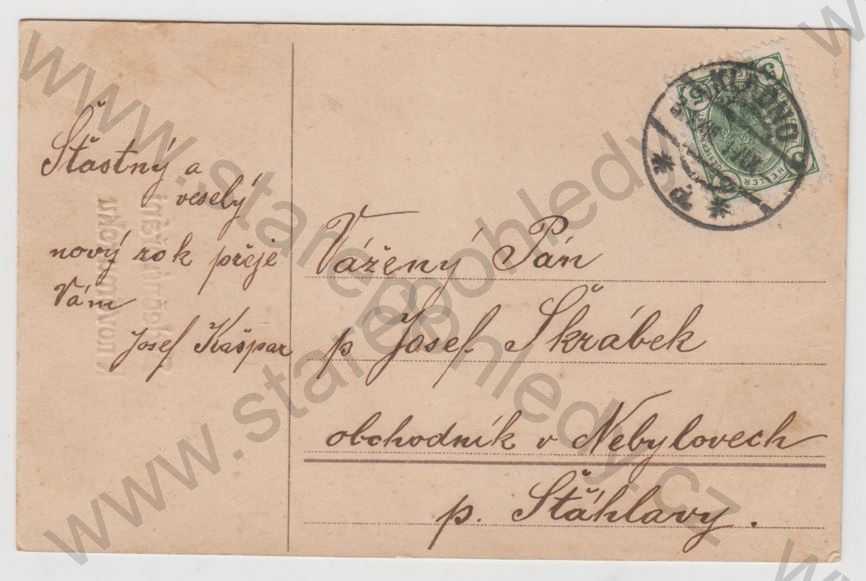 Šťastný a
veselý
nový rok přeje
Vám
Josef Kašpar
Vážený Pán
p. Josef Škrábek
obchodník v Nebylovech
p. Šťáhlavy.
KLADNO
HELLER
www.starepohledy.cz
www.starepohledy.cz